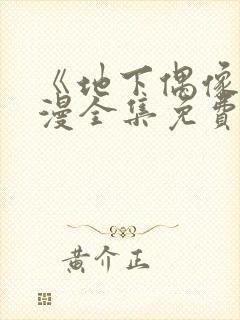 《地下偶像
漫全集免費
黄介正